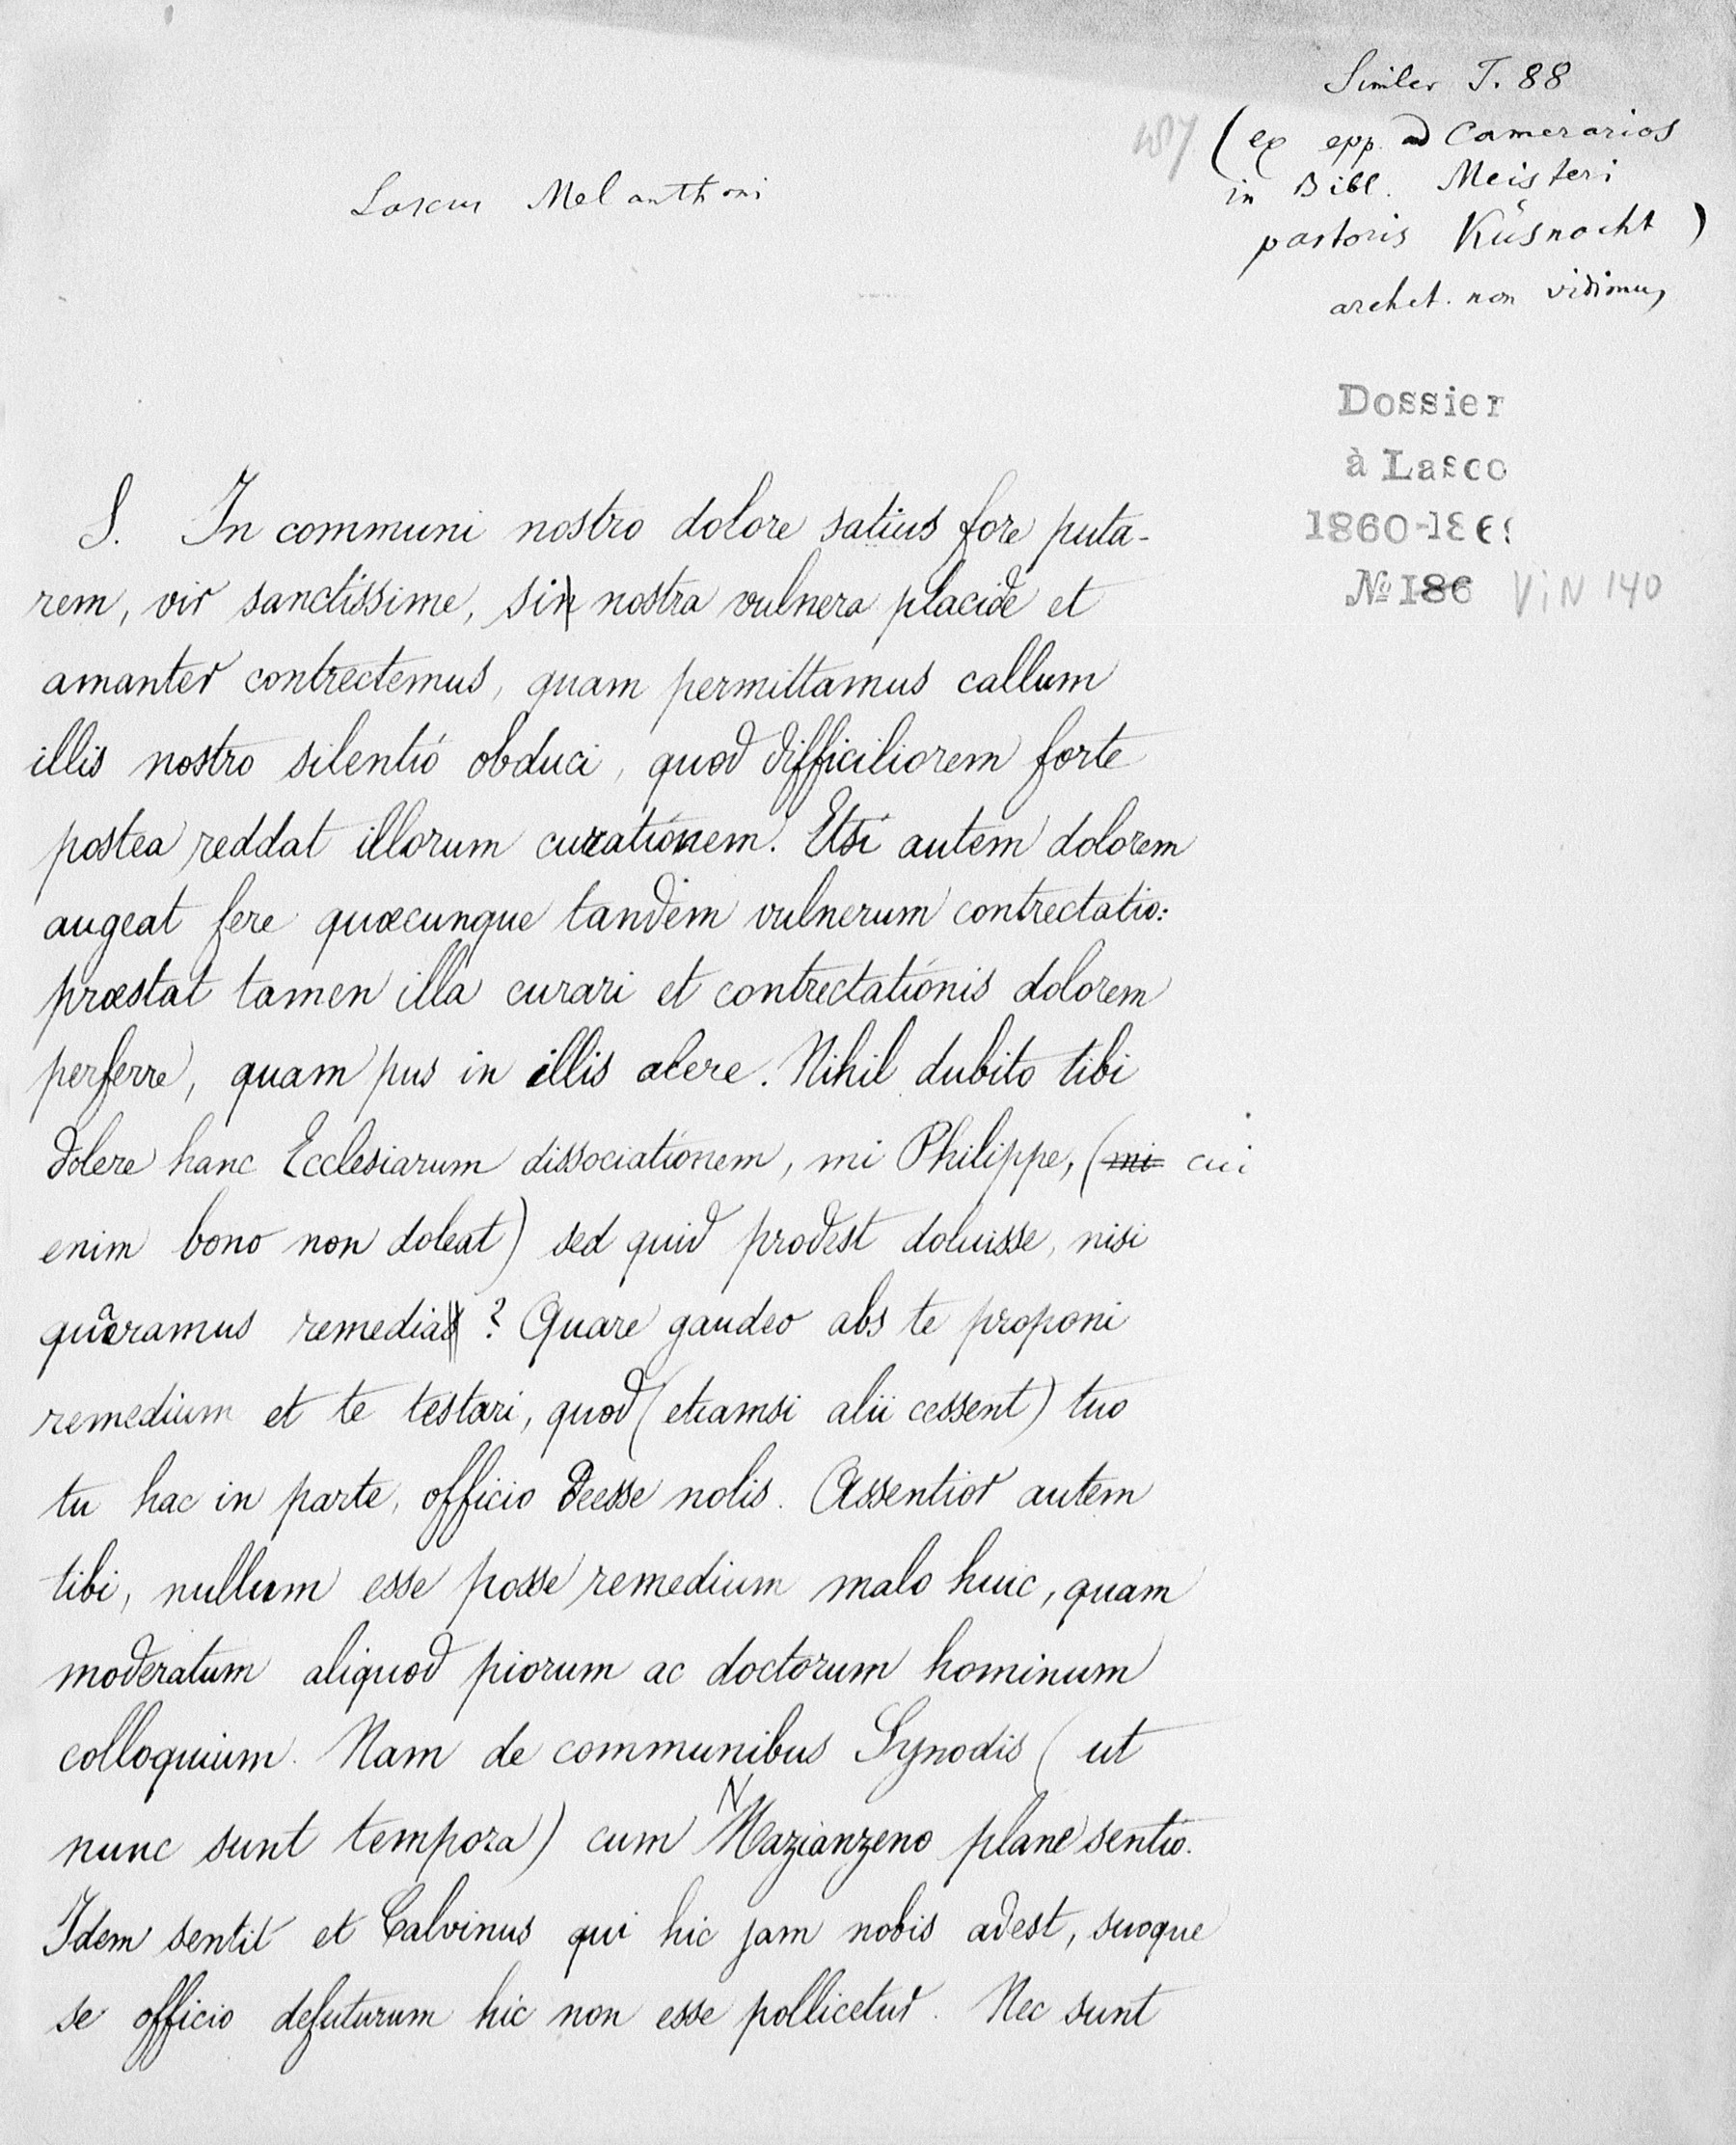 Simler T. 88
(ex epp. ad Camerarios
in Bibl. Meisteri
pastoris Küsnacht)
archet. non vidimus
Lascus Melanthoni
Dossier
à Lasco
1860-186
№ 186 ViN 140
S. In communi nostro dolore satius fore puta-
rem, vir sanctissime, si nostra vulnera placide et
amanter contrectemus, quam permittamus callum
illis nostro silentio obduci, quod difficiliorem forte
postea reddat illorum curationem. Etsi autem dolorem
augeat fere quæcunque tandem vulnerum contrectatio:
præstat tamen illa curari et contrectationis dolorem
perferre, quam pus in illis alere. Nihil dubito tibi
dolere hanc Ecclesiarum dissociationem, mi Philippe, (mi cui
enim bono non doleat) sed quid prodest doluisse, nisi
quaeramus remedia? Quare gaudeo abs te proponi
remedium et te testari, quod (etiamsi alii cessent) tuo
tu hac in parte, officio deesse nolis. Assentior autem
tibi, nullum esse posse remedium malo huic, quam
moderatum aliquod piorum ac doctorum hominum
colloquium. Nam de communibus Synodis (ut
nunc sunt tempora) cum Nazianzeno plane sentio.
Idem sentit et Calvinus qui hic jam nobis adest, suoque
se officio defuturum hic non esse pollicetur. Nec sunt